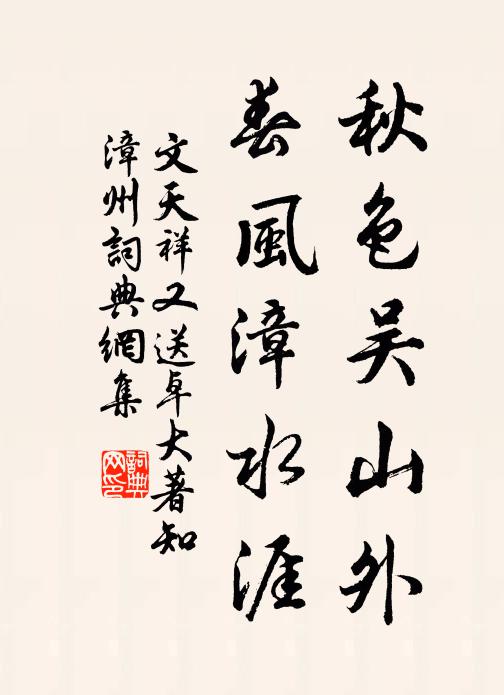 秋色吴山外
春風漳水涯
文天祥又送卓大著知
漳州詞典網集
詞典网印